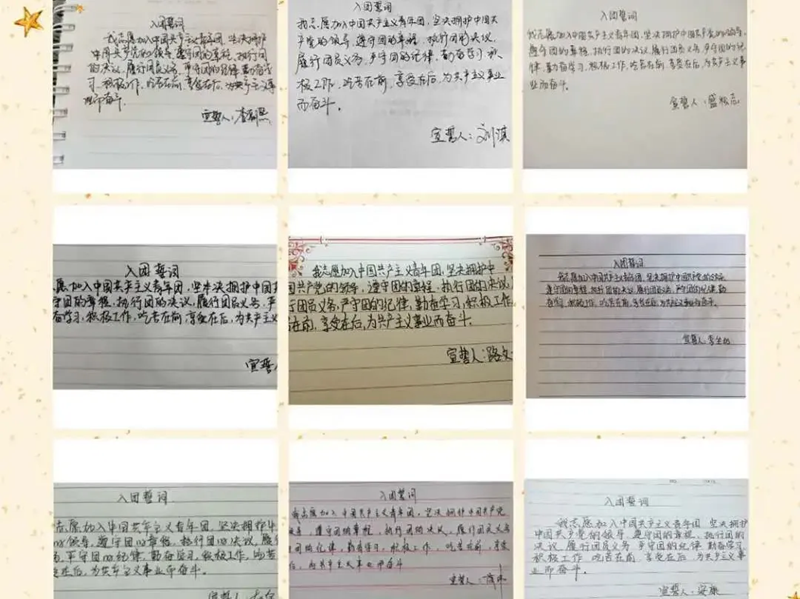 入团誓词
我志愿加入中国共产主义青年团，坚决拥护
中国共产党的领导，遵守团的章程，执行团
的决议，履行团员义务，严守团的纪律，勤奋学
习，积极工作，吃苦在前，享受在后，为共产主义事
业而奋斗。
宣誓人：
入团誓词
我志愿加入中国共产主义青年团，坚决拥护中国共
产党的领导，遵守团的章程，执行团的决议，
履行团员义务，严守团的纪律，勤奋学习，积
极工作，吃苦在前，享受在后，为共产主义事业
而奋斗。
宣誓人：刘淇
入团誓词
我志愿加入中国共产主义青年团，坚决拥护中国共产党的领导，
遵守团的章程，执行团的决议，履行团员义务，严守团的纪
律，勤奋学习，积极工作，吃苦在前，享受在后，为共产主义事
业而奋斗。
宣誓人：盛
入团誓词
愿加入中国共产主义青年团，坚决拥护中国共
守团的章程，执行团的决议，履行团员义务，严
奋学习，积极工作，吃苦在前，享受在后，为共产主义
宣誓人
我志愿加入中国共产主义青年团，坚决拥护中
国共产党的领导，遵守团的章程，执行团的决议，
行团员义务，严守团的纪律，勤奋学习，积极工作，
苦在前，享受在后，为共产主义事业而奋斗。
宣誓人：路文
入团誓词
我志愿加入中国共产主义青年团，坚决拥护中国共产党的领导，
遵守团的章程，执行团的决议，履行团员义务，严守团的纪律，勤
奋学习，积极工作，吃苦在前，享受在后，为共产主义事业而奋斗。
宣誓人：李
入团誓词
志愿加入中国共产主义青年团，坚决拥护中
的领导，遵守团的章程，执行团的决议，履行
，严守团的纪律，勤奋学习，积极工作，吃苦
在后，为共产主义事业而奋斗。
宣誓人：
入团誓词
我志愿加入中国共产主义青年团，坚决拥护中国共产党
领导，遵守团的章程，执行团的决议，履行团员义务
团的纪律，勤奋学习，积极工作，吃苦在前，享受
在后，为共产主义事业而奋斗
宣誓人：
入团誓词
我志愿加入中国共产主义青年团，坚决拥护
中国共产党的领导，遵守团的章程，执行团的
决议，履行团员义务，严守团的纪律，勤奋学习，
积极工作，吃苦在前，享受在后，为共产主义事业
而奋斗。
宣誓人：安